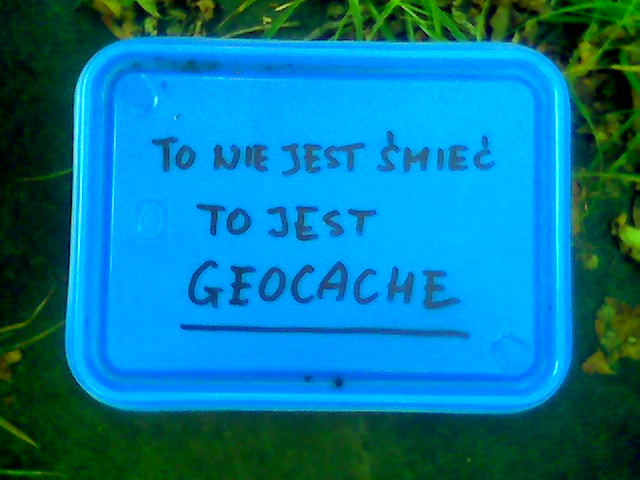 TO NIE JEST ŚMIEĆ
TO JEST
GEOCACHE